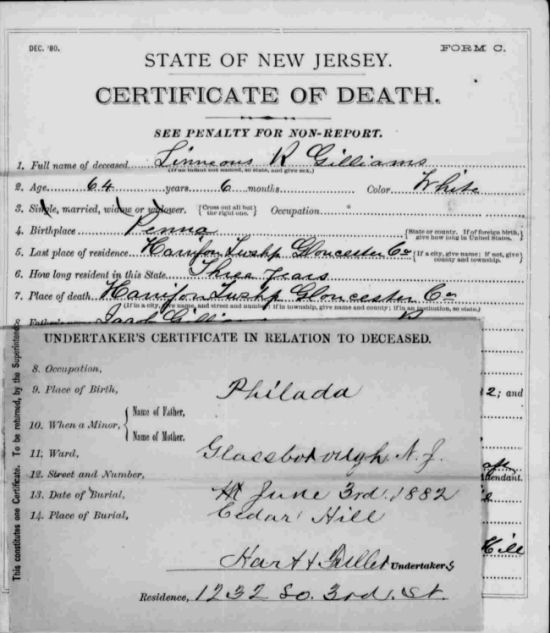 DEC. '80.
FORM C.
STATE OF NEW JERSEY.
CERTIFICATE OF DEATH.
SEE PENALTY FOR NON-REPORT.
1. Full name of deceased Linneous R Gilliams
(If an infant not named, so state, and give sex.)
2. Age 64 years 6 months Color White
3. Single, married, widow or widower. {Cross out all but the right one.} Occupation
4. Birthplace Penna {State or county. If of foreign birth, give how long in United States.
5. Last place of residence Harrison Twshp Gloucester Co {If a city, give name; if not, give county and township.
6. How long resident in this State Three Years
7. Place of death Harrison Twshp Gloucester Co
(If in a city, give name, and street and number; if in township, give name and county; if in an institution, so state.)
8 Jacob
2; and
endant.
Hill
This constitutes one Certificate. To be returned, by the Superintend
UNDERTAKER'S CERTIFICATE IN RELATION TO DECEASED.
8. Occupation,
9. Place of Birth, Philada
10. When a Minor, { Name of Father,
Name of Mother.
11. Ward, Glassborough N. J.
12. Street and Number,
13. Date of Burial, June 3rd. 1882
14. Place of Burial, Cedar Hill
Hart & Undertakers
Residence, 1232 So. 3rd. St.